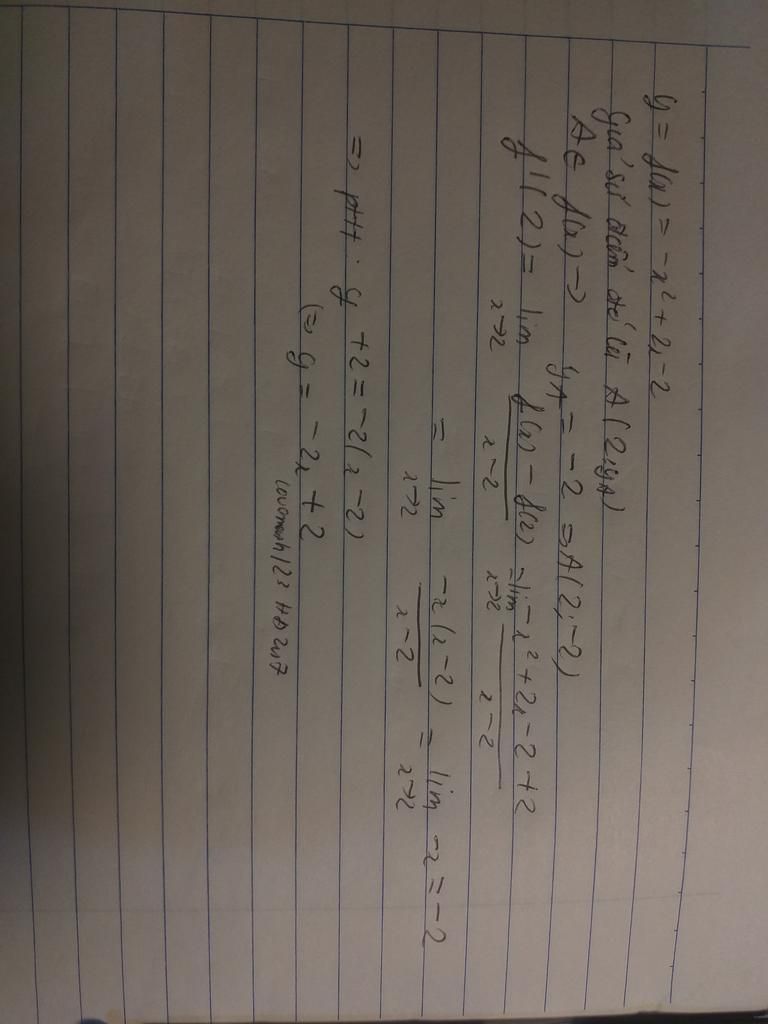 y = f(x) = -x² + 2x - 2
Giả sử điểm đó là A(2; yA)
A ∈ f(x) → yA = -2 ⇒ A(2; -2)
f'(2) = lim x→2 (f(x) - f(2))/(x - 2) = lim x→2 (-x² + 2x - 2 + 2)/(x - 2)
= lim x→2 (-x(x - 2))/(x - 2) = lim x→2 -x = -2
⇒ ptt: y + 2 = -2(x - 2)
(⇒ y = -2x + 2